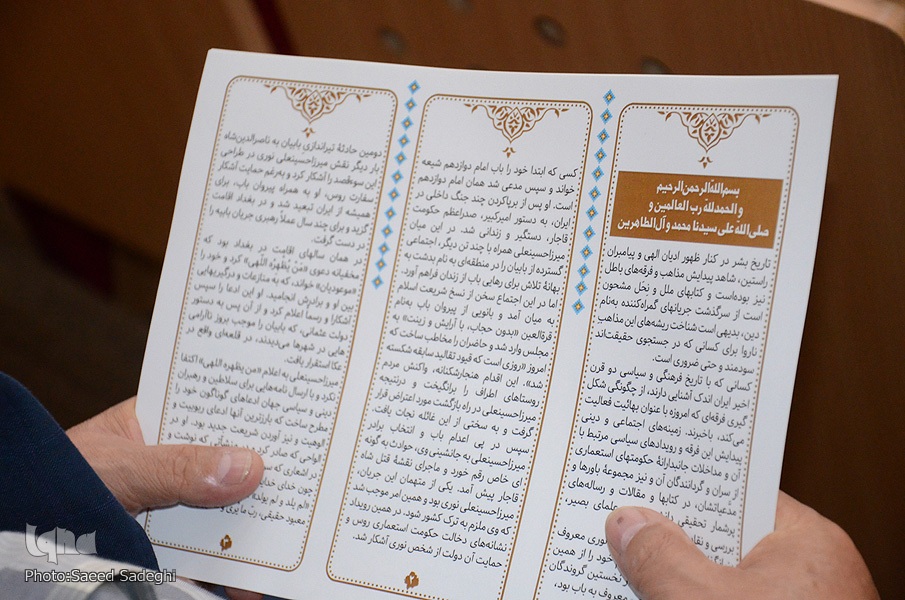 بسم الله الرحمن الرحیم
و الحمدلله رب العالمین و
صلی الله علی سیدنا محمد و آل الطاهرین
تاریخ بشر در کنار ظهور ادیان الهی و پیامبران
راستین، شاهد پیدایش مذاهب و فرقه‌های باطل
نیز بوده‌است و کتابهای ملل و نحل مشحون
است از سرگذشت جریانهای گمراه‌کننده به‌نام
دین، بدیهی است شناخت ریشه‌های این مذاهب
ناروا برای کسانی که در جستجوی حقیقت‌اند
سودمند و حتی ضروری است.
کسانی که با تاریخ فرهنگی و سیاسی دو قرن
اخیر ایران اندک آشنایی دارند، از چگونگی شکل
گیری فرقه‌ای که امروزه با عنوان بهائیت فعالیت
می‌کند، باخبرند. زمینه‌های اجتماعی و دینی
پیدایش این فرقه و رویدادهای سیاسی مرتبط با
آن و مداخلات جانبدارانهٔ حکومتهای استعماری
از سران و گردانندگان آن و نیز مجموعهٔ باورها و
مدعیاتشان، در کتابها و مقالات و رساله‌های
پرشمار تحقیقی
علمای بصیر،
بررسی و نقد
نوری معروف
خود را از همین
نخستین گروندگان
معروف به باب بود،
کسی که ابتدا خود را باب امام دوازدهم شیعه
خواند و سپس مدعی شد همان امام دوازدهم
است. او پس از برپاکردن چند جنگ داخلی در
ایران، به دستور امیرکبیر، صدراعظم حکومت
قاجار، دستگیر و زندانی شد. در این میان
میرزاحسینعلی همراه با چند تن دیگر، اجتماعی
گسترده از بابیان را در منطقه‌ای به نام بدشت به
بهانهٔ تلاش برای رهایی باب از زندان فراهم آورد.
اما در این اجتماع سخن از نسخ شریعت اسلام
به میان آمد و بانویی از پیروان باب به‌نام
قرةالعین «بدون حجاب، با آرایش و زینت» به
مجلس وارد شد و حاضران را مخاطب ساخت که
امروز «روزی است که قیود تقالید سابقه شکسته
شد». این اقدام هنجارشکنانه، واکنش مردم
روستاهای اطراف را برانگیخت و درنتیجه
میرزاحسینعلی در راه بازگشت مورد اعتراض قرار
گرفت و به سختی از این غائله نجات یافت.
سپس در پی اعدام باب و انتخاب برادر
میرزاحسینعلی به جانشینی وی، حوادث به گونه
ای خاص رقم خورد و ماجرای نقشهٔ قتل شاه
قاجار پیش آمد. یکی از متهمان این جریان،
میرزاحسینعلی نوری بود و همین امر موجب شد
که وی ملزم به ترک کشور شود. در همین رویداد
نشانه‌های دخالت حکومت استعماری روس و
حمایت آن دولت از شخص نوری آشکار شد.
۲
دومین حادثهٔ تیراندازی بابیان به ناصرالدین‌شاه
بار دیگر نقش میرزاحسینعلی نوری در طراحی
این سوءقصد را آشکار کرد و به‌رغم حمایت آشکار
سفارت روس، او به همراه پیروان باب، برای
همیشه از ایران تبعید شد و در بغداد اقامت
گزید و برای چند سال عملاً رهبری جریان بابیه را
در دست گرفت.
در همان سالهای اقامت در بغداد بود که
مخفیانه دعوی «مَن یُظهِرُه اللهی» کرد و خود را
«موعودبیان» خواند، که به منازعات و درگیریهایی
بین او و برادرش انجامید. او این ادعا را سپس
آشکارا و رسما اعلام کرد و از آن پس به دستور
دولت عثمانی، که بابیان را موجب بروز ناآرامی
هایی در شهرها می‌دیدند، در قلعه‌ای واقع در
عکا استقرار یافت.
میرزاحسینعلی به اعلام «من یظهره اللهی» اکتفا
نکرد و با ارسال نامه‌هایی برای سلاطین و رهبران
دینی و سیاسی جهان ادعاهای گوناگون خود را
مطرح ساخت که بارزترین آنها ادعای ربوبیت و
الوهیت و نیز آوردن شریعت جدید بود. او در
الواحی که صادر کرد
که نوشت و
اشعاری که سرود
چون خدای خدایان
«لم یلد و لم یولد
معبود حقیقی، رب ما یری و
۳
iqna
Photo:Saeed Sadeghi